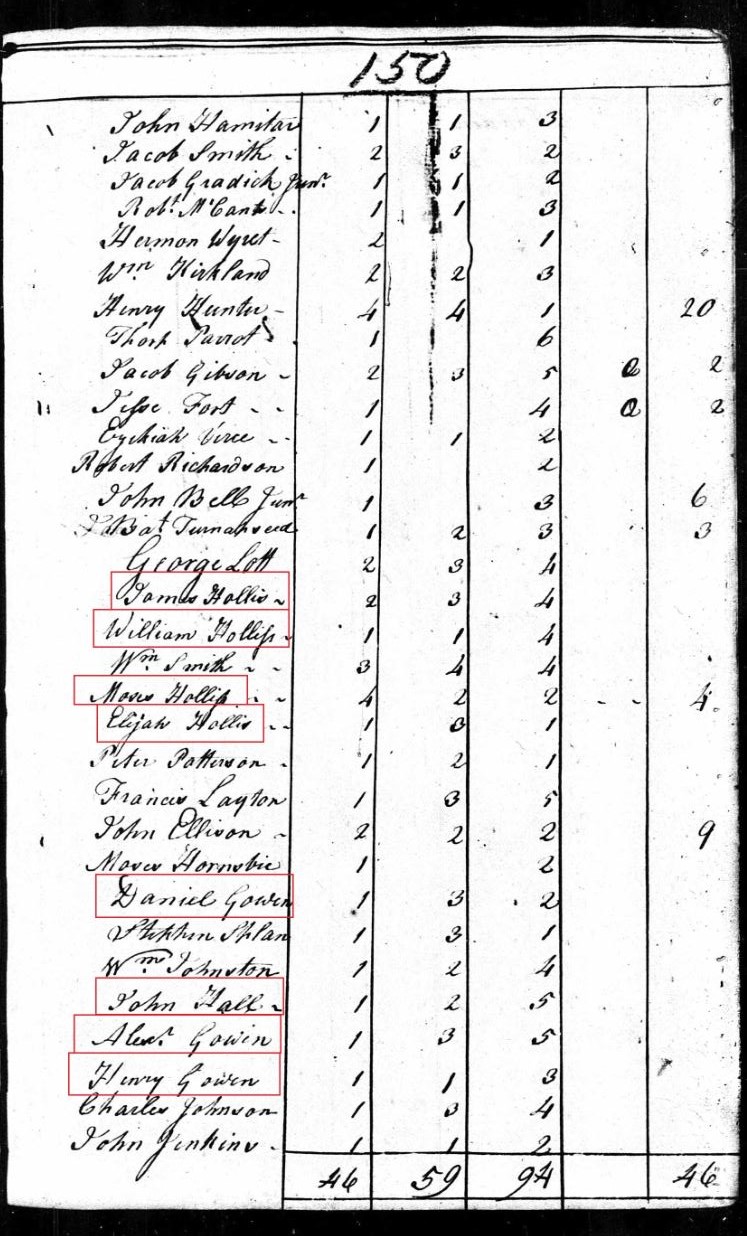 150
John Hamitar 1 1 3
Jacob Smith 2 3 2
Jacob Gradick Junr. 1 1 2
Robt. McCant 1 1 3
Hermon Wyret 2 1
Wm Kirkland 2 2 3
Henry Hunter 4 4 1 20
Parrot 1 6
Jacob Gibson 2 3 5 2
Jesse Fort 1 4 2
1 1 2
Robert Richardson 1 2
John Bell Junr 1 3 6
1 2 3 3
George Lott 2 3 4
James Hollis 2 3 4
William Hollis 1 1 4
Wm Smith 3 4 4
Moses Hollis 4 2 2 - - 4
Elijah Hollis 1 3 1
Peter Patterson 1 2 1
Francis Layton 1 3 5
John Ellison 2 2 2 9
Moses Hornsbie 1 2
Daniel Gowen 1 3 2
1 3 1
Wm Johnston 1 2 4
John Hall 1 2 5
Alexr. Gowin 1 3 5
Henry Gowen 1 1 3
Charles Johnson 1 3 4
John Jenkins 1 1 2
46 59 94 46